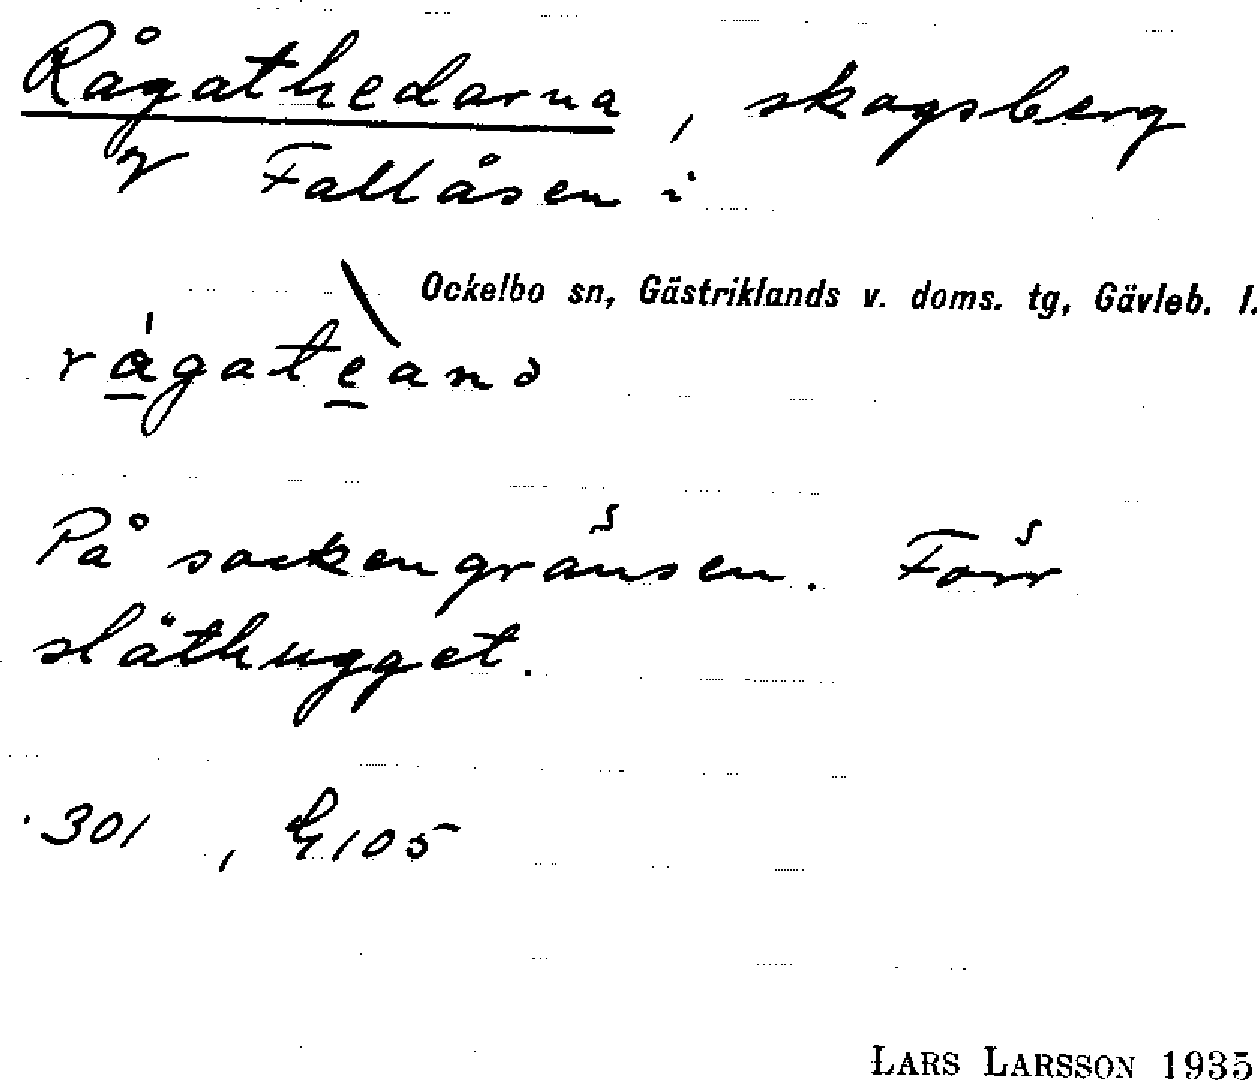 Rågathedarna, skogsberg
V Fallåsen i
Ockelbo sn, Gästriklands v. doms. tg, Gävleb. l.
På sockengränsen. Förr
släthugget.
301, E105
LARS LARSSON 1935